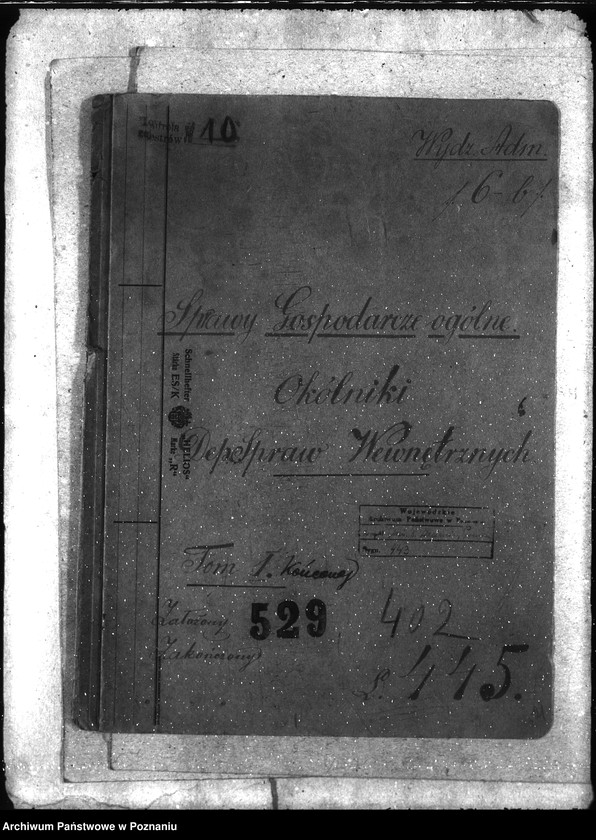 10
Wydz. Adm.
6-b/.
Sprawy Gospodarcze ogólne.
Okólniki
Dep Spraw Wewnętrznych
Schnellhefter
"HELIOS"
ES/K
"R"
Wojewódzkie
Archiwum Państwowe w
Tom I.
Założony
Zakończony
529
402
L. 115.
Archiwum Państwowe w Poznaniu